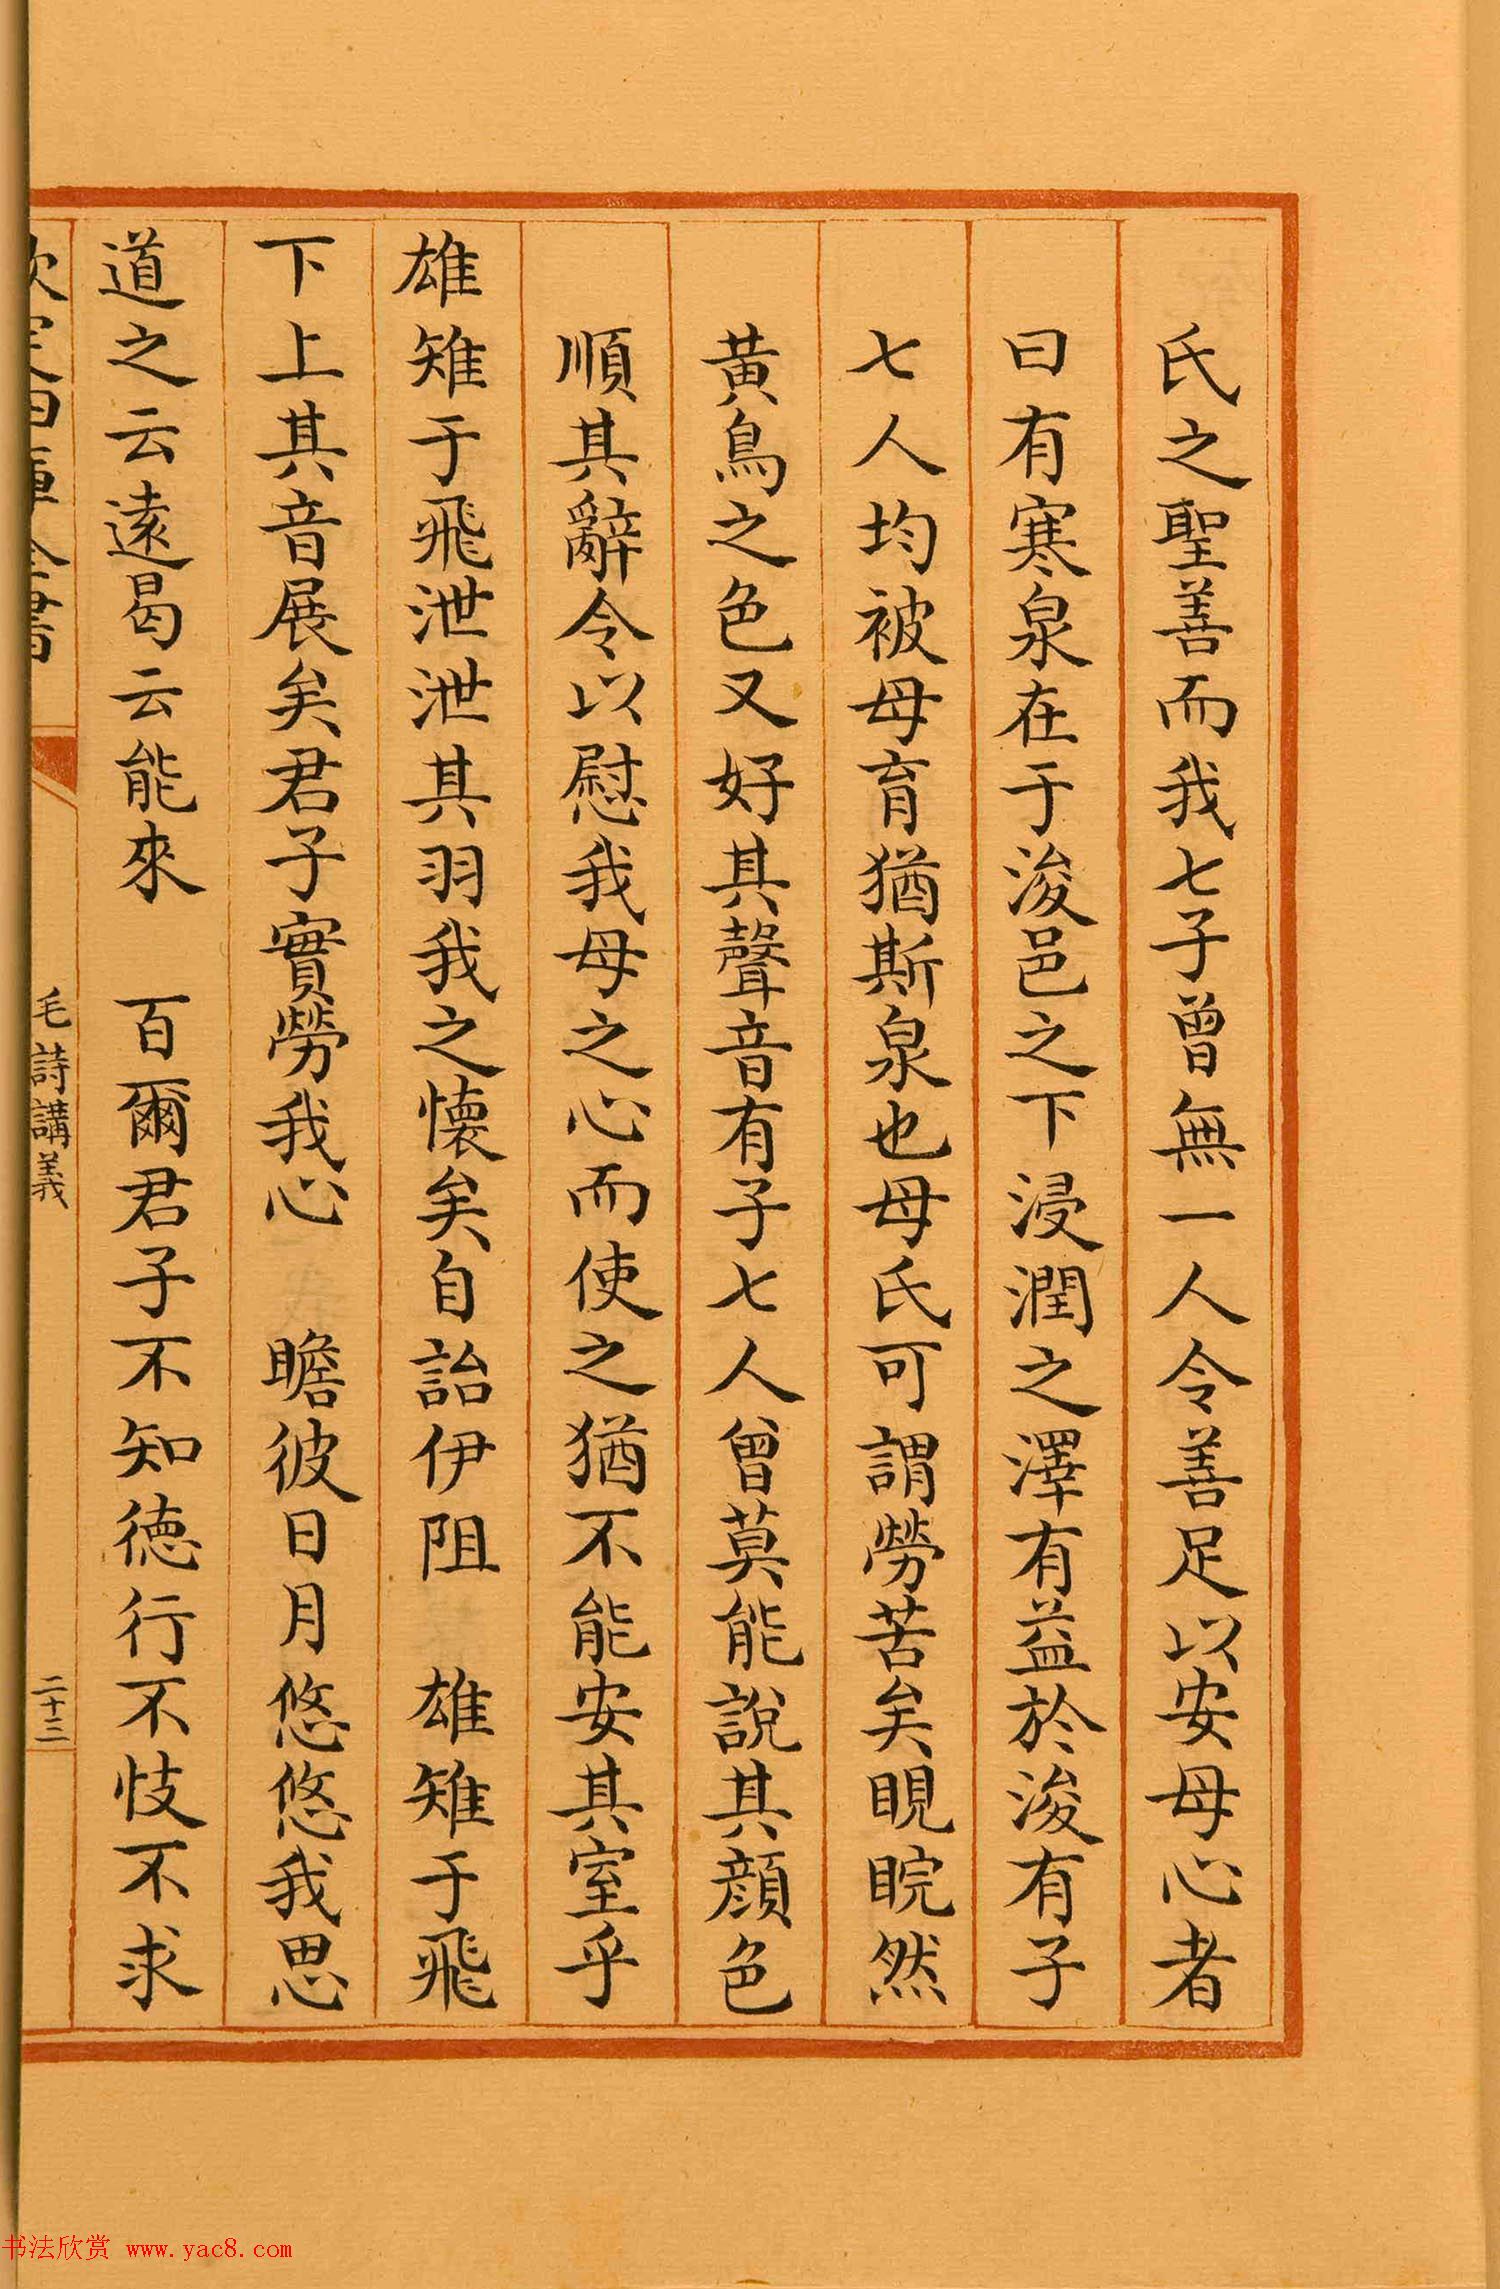 氏之聖善而我七子曾無一人令善足以安母心者
曰有寒泉在于浚邑之下浸潤之澤有益於浚有子
七人均被母育猶斯泉也母氏可謂勞苦矣睍睆然
黃鳥之色又好其聲音有子七人曾莫能說其顏色
順其辭令以慰我母之心而使之猶不能安其室乎
雄雉于飛泄泄其羽我之懷矣自詒伊阻 雄雉于飛
下上其音展矣君子實勞我心 瞻彼日月悠悠我思
道之云遠曷云能來 百爾君子不知德行不忮不求
欽定四庫全書
毛詩講義
二十三
书法欣赏 www.yac8.com